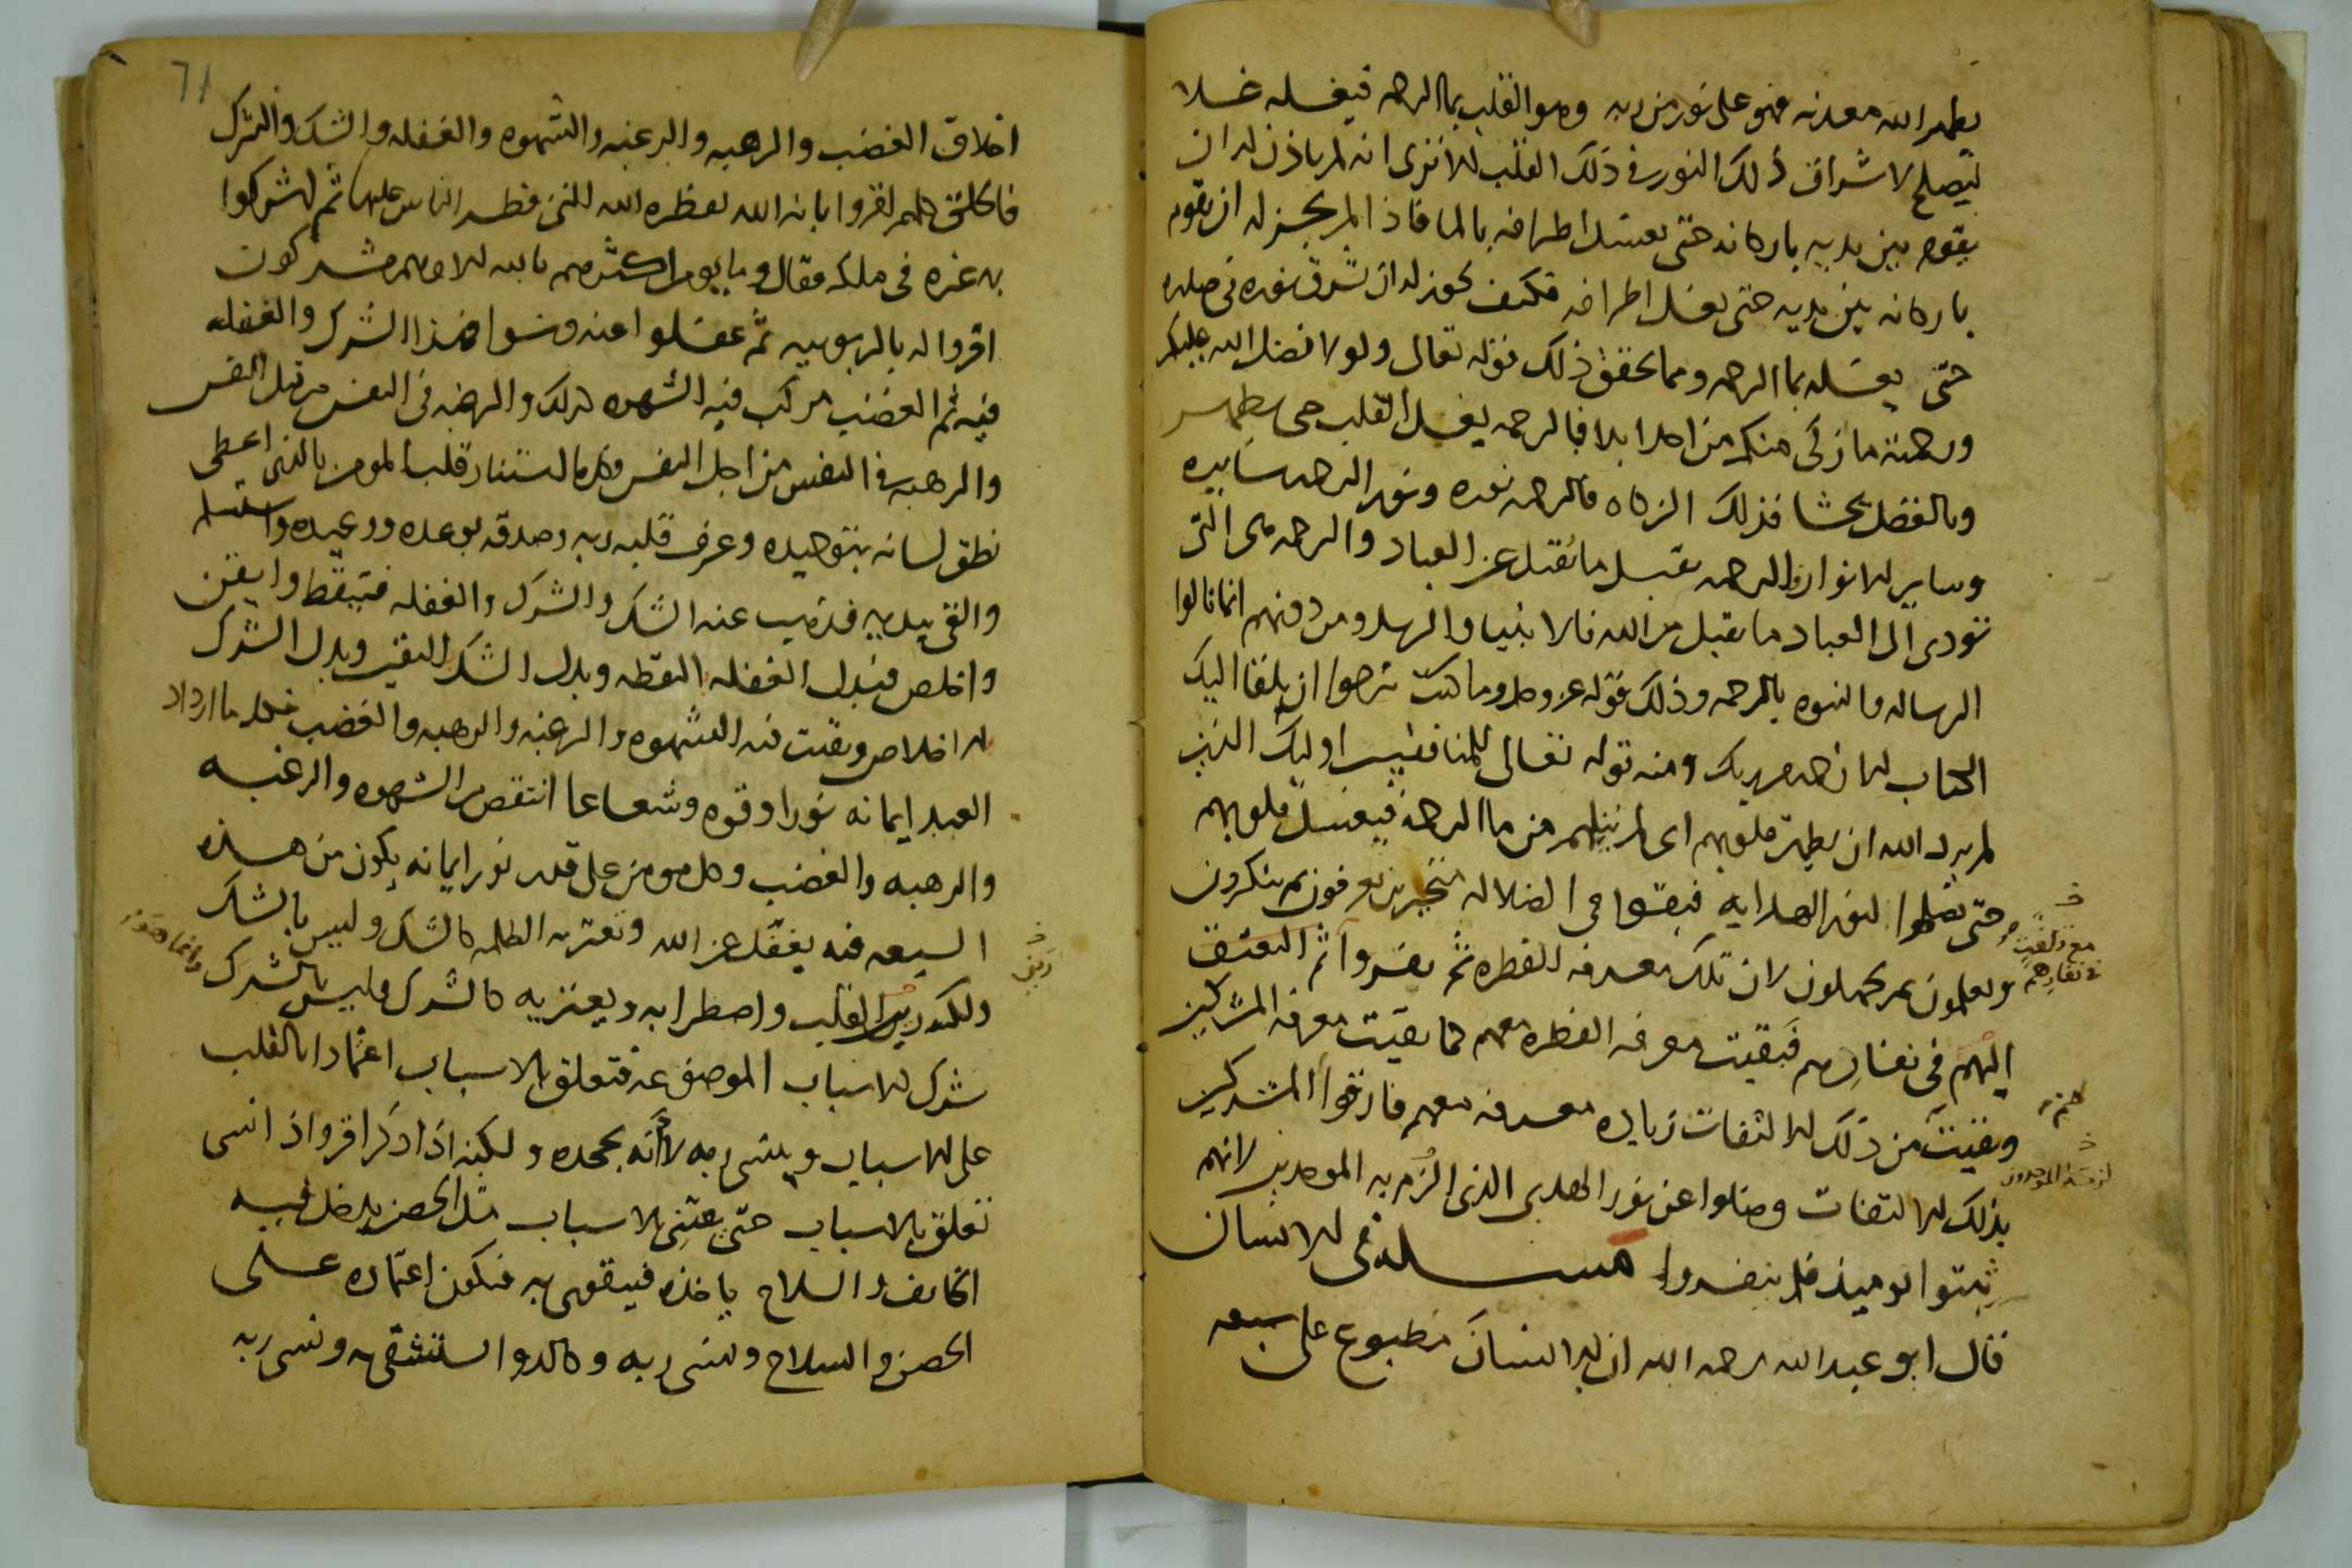 يطهر الله معدنه فهو على نور من ربه وهو القلب بما الرحمه فيغسله غسلا
ليصلح لاشراق ذلك النور في ذلك القلب الا ترى انه لم ياذن له ان
يقوم بين يديه باركانه حتى يغسل اطرافه بالما فاذا لم يجز له ان يقوم
باركانه بين يديه حتى يغسل اطرافه فكيف يجوز له ان تشرق نوره في صدره
حتى يغسله بما الرحمه ومما يحقق ذلك قوله تعالى ولولا فضل الله عليكم
ورحمته ما زكى منكم من احد ابدا فبالرحمه يغسل القلب حى يطهر
وبالفضل يحشا فذلك الزكاه فالرحمه نوره ونور الرحمه سابره
وساير الانوار والرحمه تقبل ما تقبل عن العباد والرحمه هى التى
تودى الى العباد ما تقبل من الله فالانبيا والرسل ومن دونهم انما نالوا
الرساله والنبوه بالرحمه وذلك قوله عز وجل وما كنت ترجوا ان يلقا اليك
الكتاب الا رحمه من ربك ومنه قوله تعالى للمنافقين اوليك الذين
لم يرد الله ان يطهر قلوبهم اى لم ينلهم من ما الرحمه فيغسل قلوبهم
حتى يصلوا لنور الهدايه فبقوا فى الضلاله متحيرين يعرفون ثم ينكرون
ويعلمون ثم يجهلون لان تلك معرفه الفطره ثم نفروا ثم التفت
اليهم فى نفارهم فبقيت معرفه الفطره معهم كما بقيت معرفه المشركين
وبقيت من ذلك الالتفات زياده معرفه معهم فارقوا المشركين
بذلك الالتفات وضلوا عن نور الهدى الذى الزم به الموحدين لانهم
ثبتوا يوميذ فلم ينفروا مسله فى الانسان
قال ابو عبد الله رحمه الله ان الانسان مطبوع على سبعه
في نفارهم
71
اخلاق الغضب والرهبه والرغبه والشهوه والغفله والشك والشرك
فالخلق كلهم اقروا بانه الله لفطره الله التى فطر الناس عليها ثم اشركوا
به غيره فى ملكه فقال وما يومن اكثرهم بالله الا وهم مشركون
اقروا له بالربوبيه ثم غفلوا عنه ونسوا فهذا الشرك والغفله
فيه ثم الغضب مركب فيه الشهوه كذلك والرغبه فى النفس من قبل النفس
والرهبه فى النفس من اجل النفس فلما استنار قلب المومن بالذى اعطى
نطق لسانه بتوحيده وعرف قلبه ربه وصدقه بوعده ووعيده واستسلم
والقى بيديه فذهب عنه الشك والشرك والغفله فتيقظ وايقن
واخلص فبدل الغفله اليقظه وبدل الشك اليقين وبدل الشرك
اخلاص وبقيت فيه الشهوه والرغبه والرهبه والغضب فكلما ازداد
العبد ايمانه نورا وقوه وشعاعا انتقص من الشهوه والرغبه
والرهبه والغضب وكل مومن على قدر نور ايمانه يكون من هذه
السبعه فيه يغفل عن الله وتعتريه الظلمه كالشك وليس بالشك
ولكنه رين القلب واضطرابه ويعتريه كالشرك وليس بالشرك وانما هو
شرك الاسباب الموضوعه فتعلق بالاسباب اعتمادا بالقلب
على الاسباب وينسى ربه لا انه يجحده ولكنه اذا ذكر اقر واذا نسى
تعلق بالاسباب حتى يعتنى بالاسباب مثل الحصن يدخل فيه
الخايف والسلاح ياخذه فيتقوى به فيكون اعتماده على
الحصن والسلاح ونسى ربه وكالدوا استشفى به ونسى ربه
رين